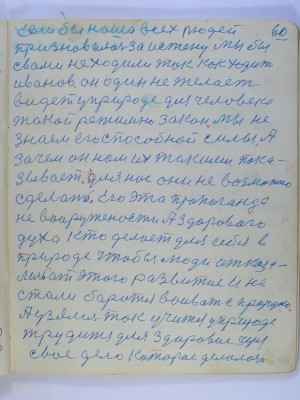 если бы наша всех людей 60
признавалась за истену мы бы
свами не ходили так как ходит
иванов. он один не желает
видет у природе для человека
такой режимно закон. мы не
знаем его способной силы. А
зачем он нам их такими пока-
зывает. для нас они не возможно
сделать. Его эта пропоганда
не вооружености А здороваго
духа кто делает для себя в
природе чтобы люди отказа-
лись от этого развытие и не
стали боротся воивать с природой
А узялись так учится у природе
трудится для здоровие
свое дело которое делалось